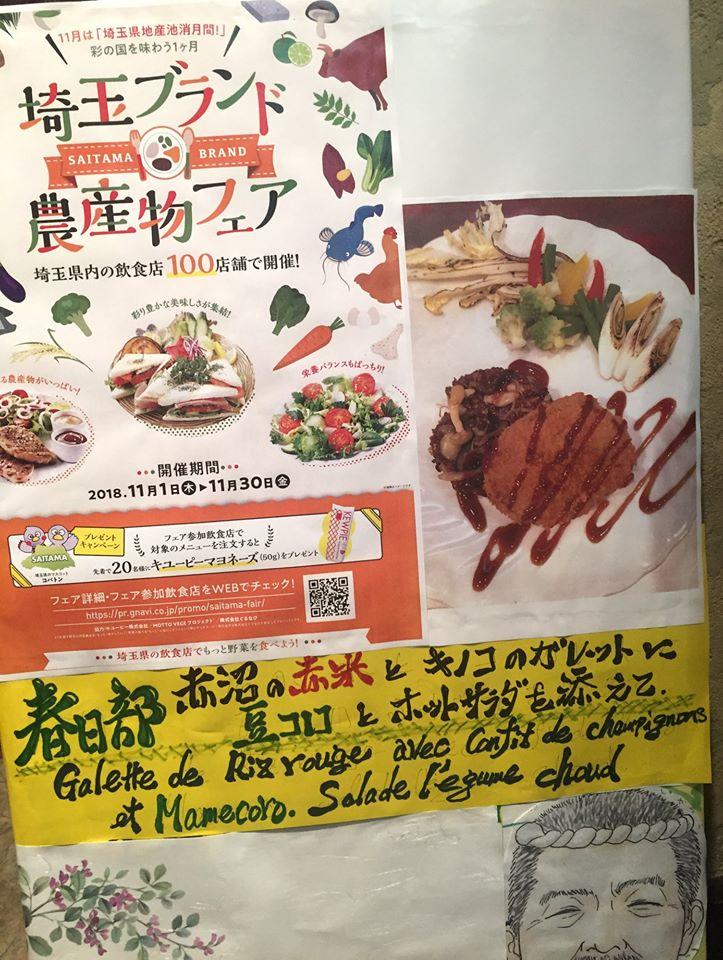 11月は「埼玉県地産地消月間!」
彩の国を味わう1ヶ月
埼玉ブランド
SAITAMA BRAND
農産物フェア
埼玉県内の飲食店100店舗で開催!
彩り豊かな美味しさが集結!
る農産物がいっぱい!
栄養バランスもばっちり!
開催期間
2018.11月1日木▶11月30日金
プレゼント
キャンペーン
SAITAMA
埼玉県のマスコット
コバトン
フェア参加飲食店で
対象のメニューを注文すると
先着で20名様にキユーピーマヨネーズ(50g)をプレゼント
KEWPIE
フェア詳細・フェア参加飲食店をWEBでチェック!
https://pr.gnavi.co.jp/promo/saitama-fair/
協力:キユーピー株式会社/MOTTO VEGE プロジェクト/株式会社ぐるなび
埼玉県の飲食店でもっと野菜を食べよう!
春日部 赤沼の赤米とキノコのガレットに
豆コロとホットサラダを添えて.
Galette de Riz rouge avec Confit de champignons
et Mamecoro. Salade l'egume chaud